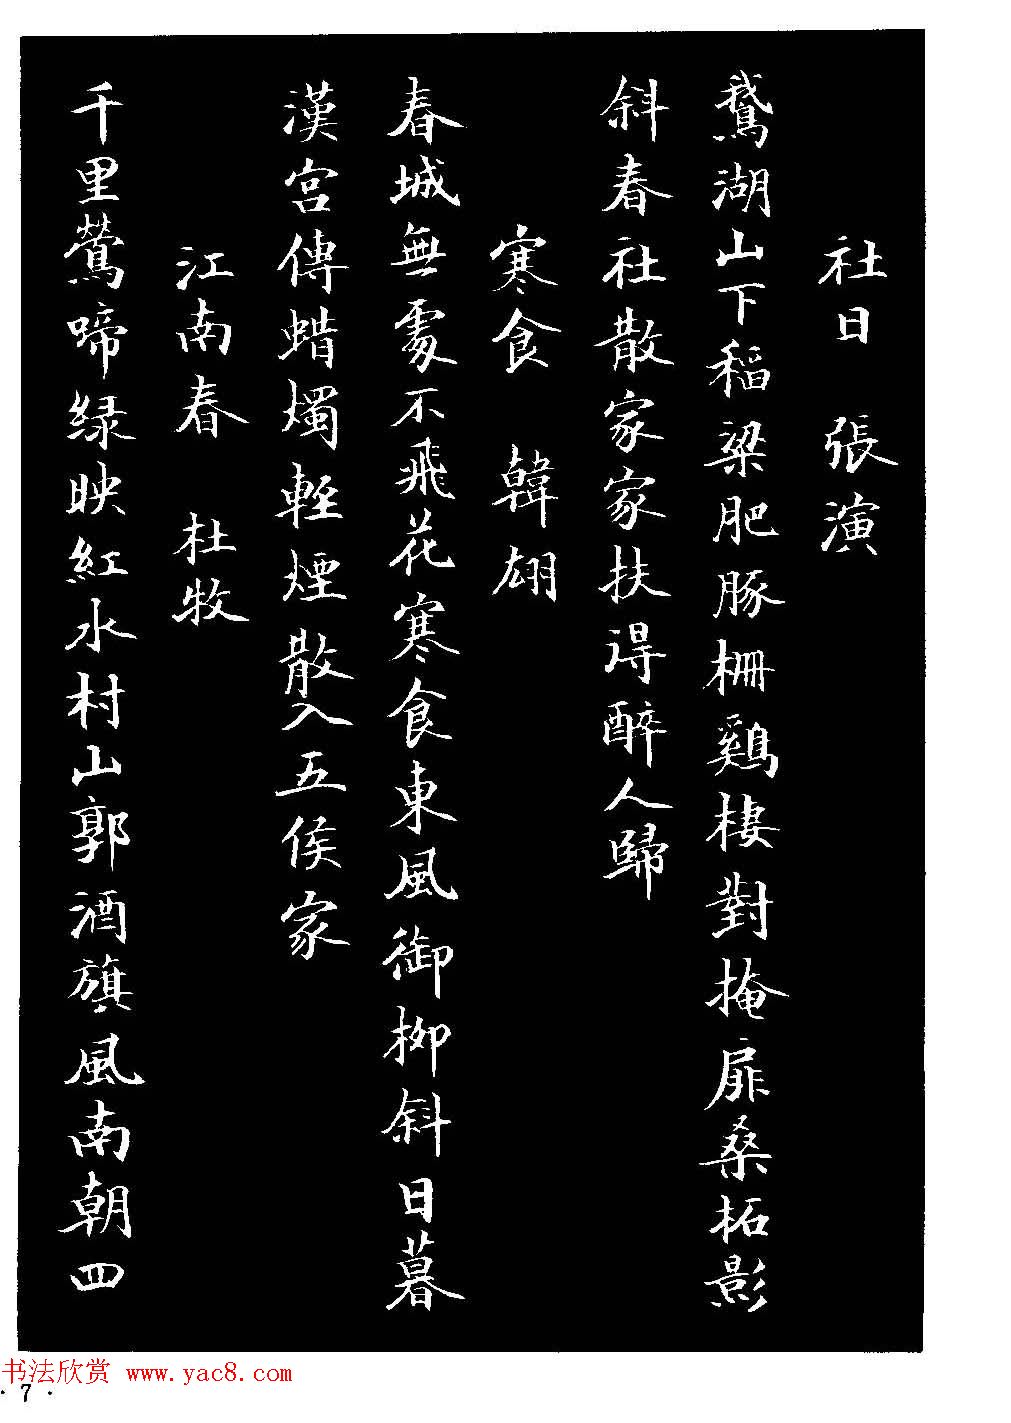 社日 張演
鵞湖山下稻粱肥豚柵鷄棲對掩扉桑柘影
斜春社散家家扶得醉人歸
寒食 韓翃
春城無處不飛花寒食東風御柳斜日暮
漢宮傳蜡燭輕煙散入五侯家
江南春 杜牧
千里鶯啼緑映紅水村山郭酒旗風南朝四
书法欣赏 www.yac8.com
· 7 ·